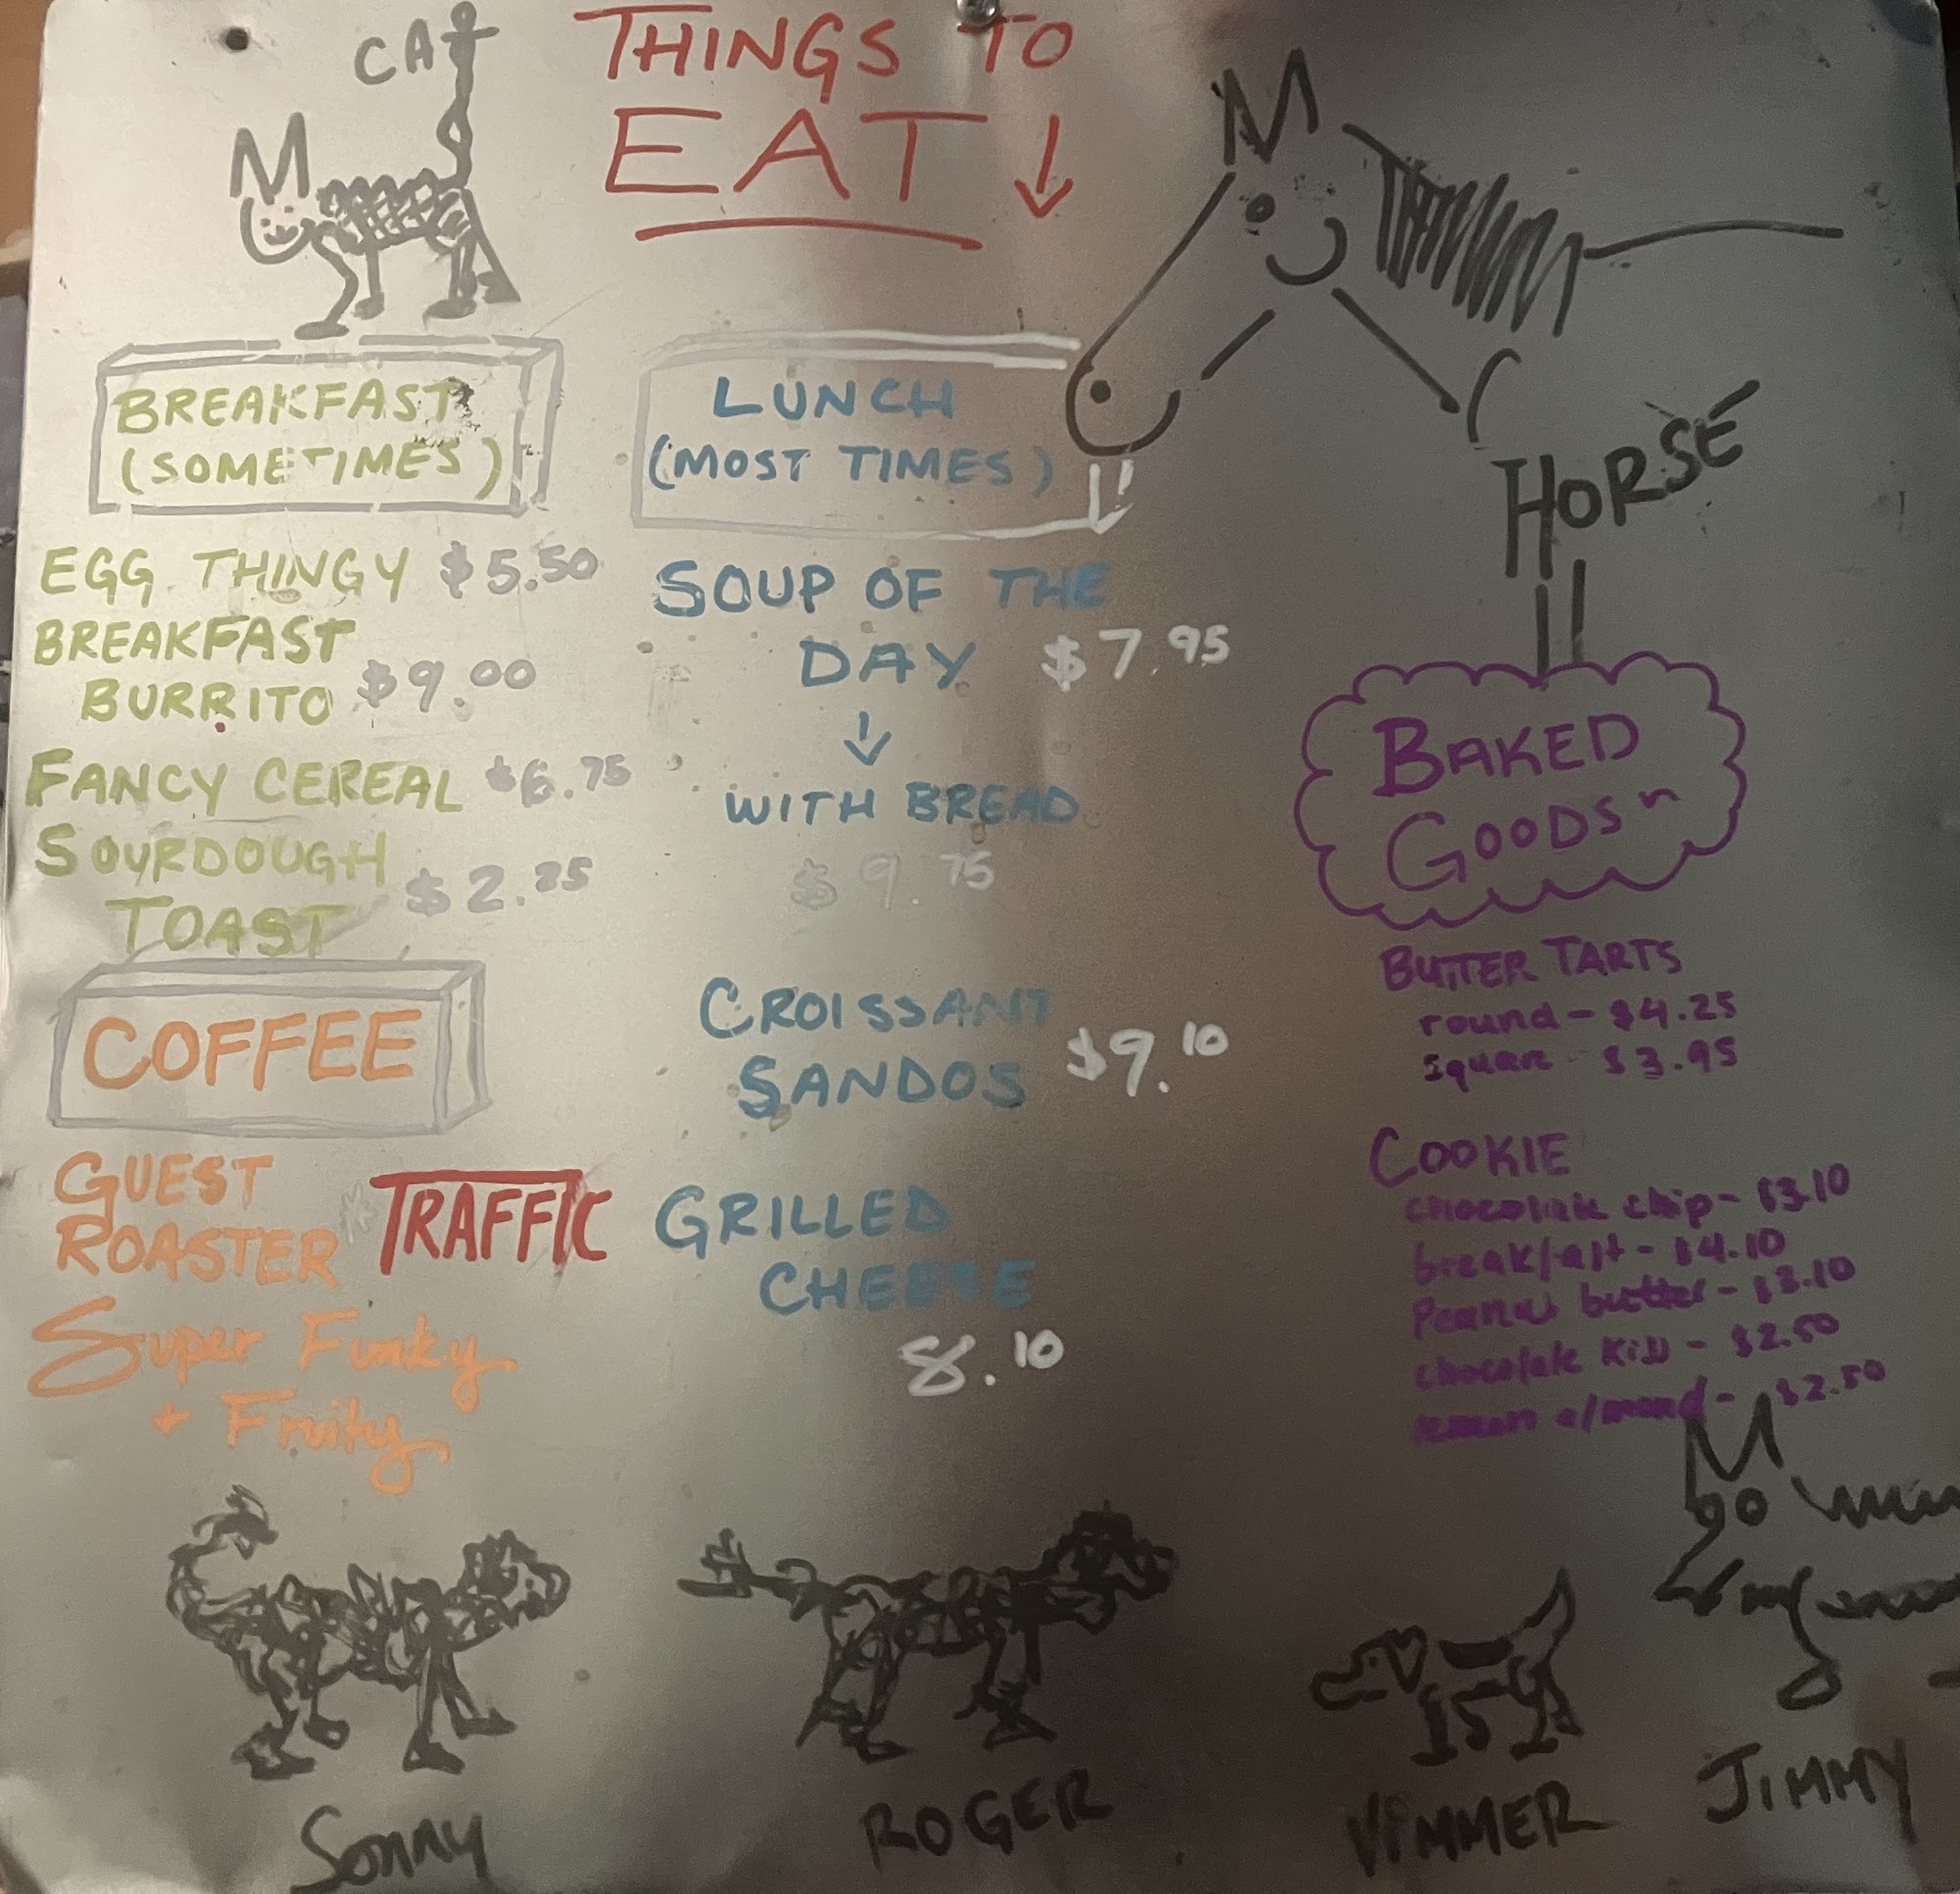 CAT
THINGS TO
EAT ↓
BREAKFAST
(SOMETIMES)
EGG THINGY $5.50
BREAKFAST
BURRITO $9.00
FANCY CEREAL $6.75
SOURDOUGH
TOAST $2.25
COFFEE
GUEST
ROASTER * TRAFFIC
Super Funky
+ Fruity
LUNCH
(MOST TIMES)
SOUP OF THE
DAY $7.95
↓
WITH BREAD
$9.75
CROISSANT
SANDOS $9.10
GRILLED
CHEESE
8.10
HORSE
BAKED
GOODS
BUTTER TARTS
round - $4.25
square - $3.95
COOKIE
chocolate chip - $3.10
breakfast - $4.10
Peanut butter - $3.10
chocolate kiss - $2.50
lemon almond - $2.50
Sonny
ROGER
VIMMER
JIMMY